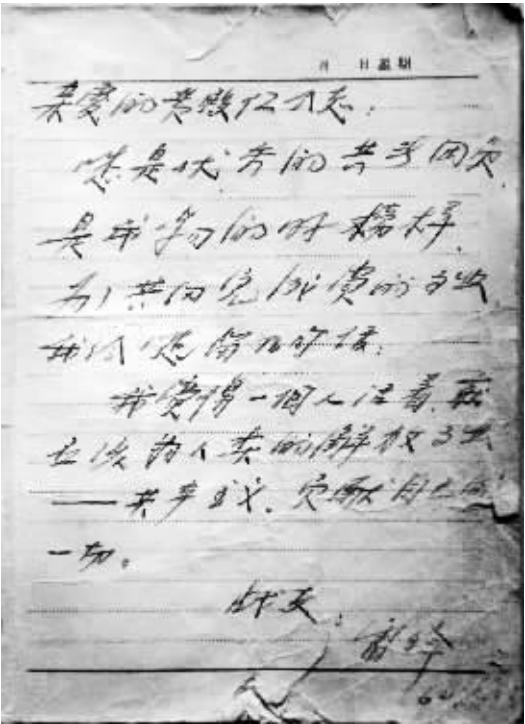 月 日 星期
亲爱的黄继仁同志:
您是伟大的共产党员
是我学习的好榜样,
为了共同完成党的事业
我给您留几句话:
我觉得一个人活着,就
应该为人类的解放事业
——共产主义,贡献自己的
一切。
战友:
雷锋